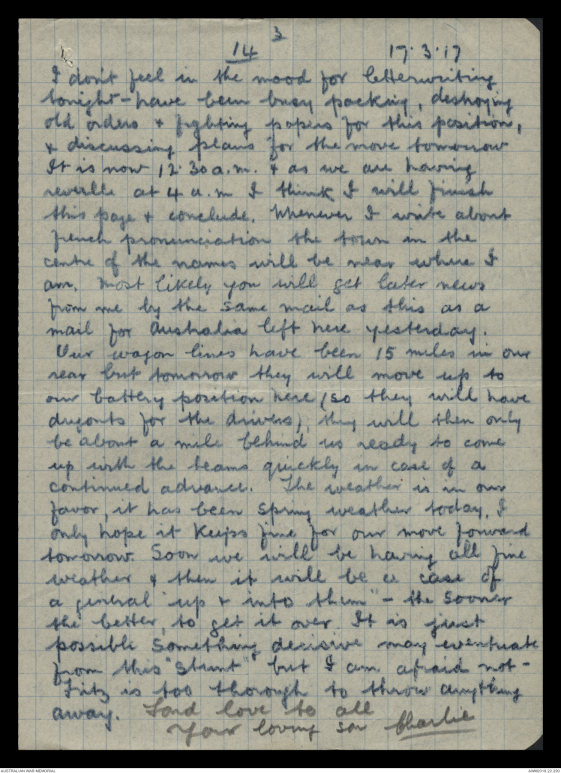 3
14 17.3.17
I don't feel in the mood for letterwriting
tonight - have been busy packing, destroying
old orders & fighting papers for this position,
& discussing plans for the move tomorrow
It is now 12.30 a.m. & as we are having
reveille at 4 a.m I think I will finish
this page & conclude. Whenever I write about
french pronunciation the town in the
centre of the names will be near where I
am. Most likely you will get later news
from me by the same mail as this as a
mail for Australia left here yesterday.
Our wagon lines have been 15 miles in our
rear but tomorrow they will move up to
our battery position here (so they will have
dugouts for the drivers), they will then only
be about a mile behind us ready to come
up with the teams quickly in case of a
continued advance. The weather is in our
favor, it has been spring weather today, I
only hope it keeps fine for our move forward
tomorrow. Soon we will be having all fine
weather & then it will be a case of
a general "up & into them" - the sooner
the better, to get it over. It is just
possible something decisive may eventuate
from this "stunt" but I am afraid not -
Fritz is too thorough to throw anything
away. Fond love to all
Your loving son Charlie
AUSTRALIAN WAR MEMORIAL